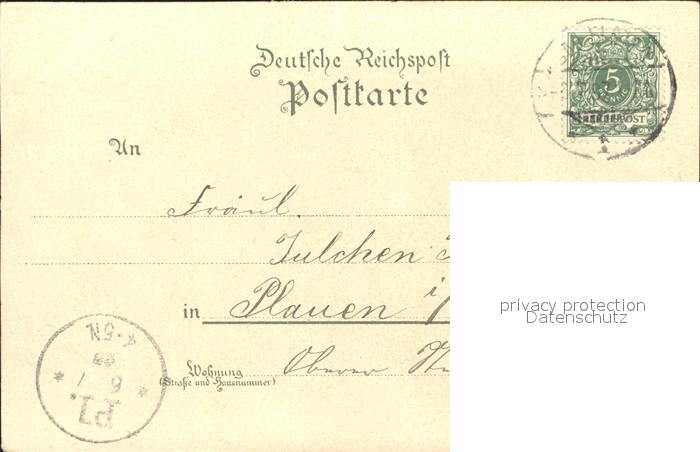 Deutsche Reichspost
Postkarte
5
PFENNIG
REICHSPOST
1
An
Fräul.
Julchen
in Plauen i/
Wohnung
(Straße und Hausnummer)
Oberer
privacy protection
Datenschutz
4-5N.
Pl.